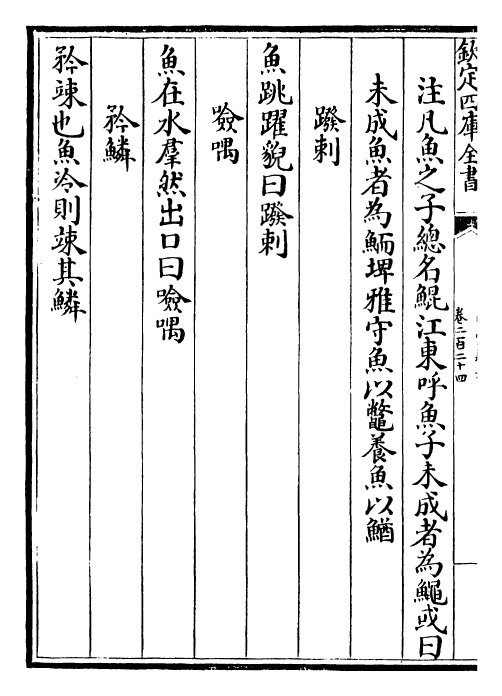 欽定四庫全書
卷二百二十四
注凡魚之子總名鯤江東呼魚子未成者為鱦或曰
未成魚者為鮞埤雅守魚以鼈養魚以鰌
蹳剌
魚跳躍貌曰蹳剌
噞喁
魚在水羣然出口曰噞喁
矜鱗
矜竦也魚冷則竦其鱗